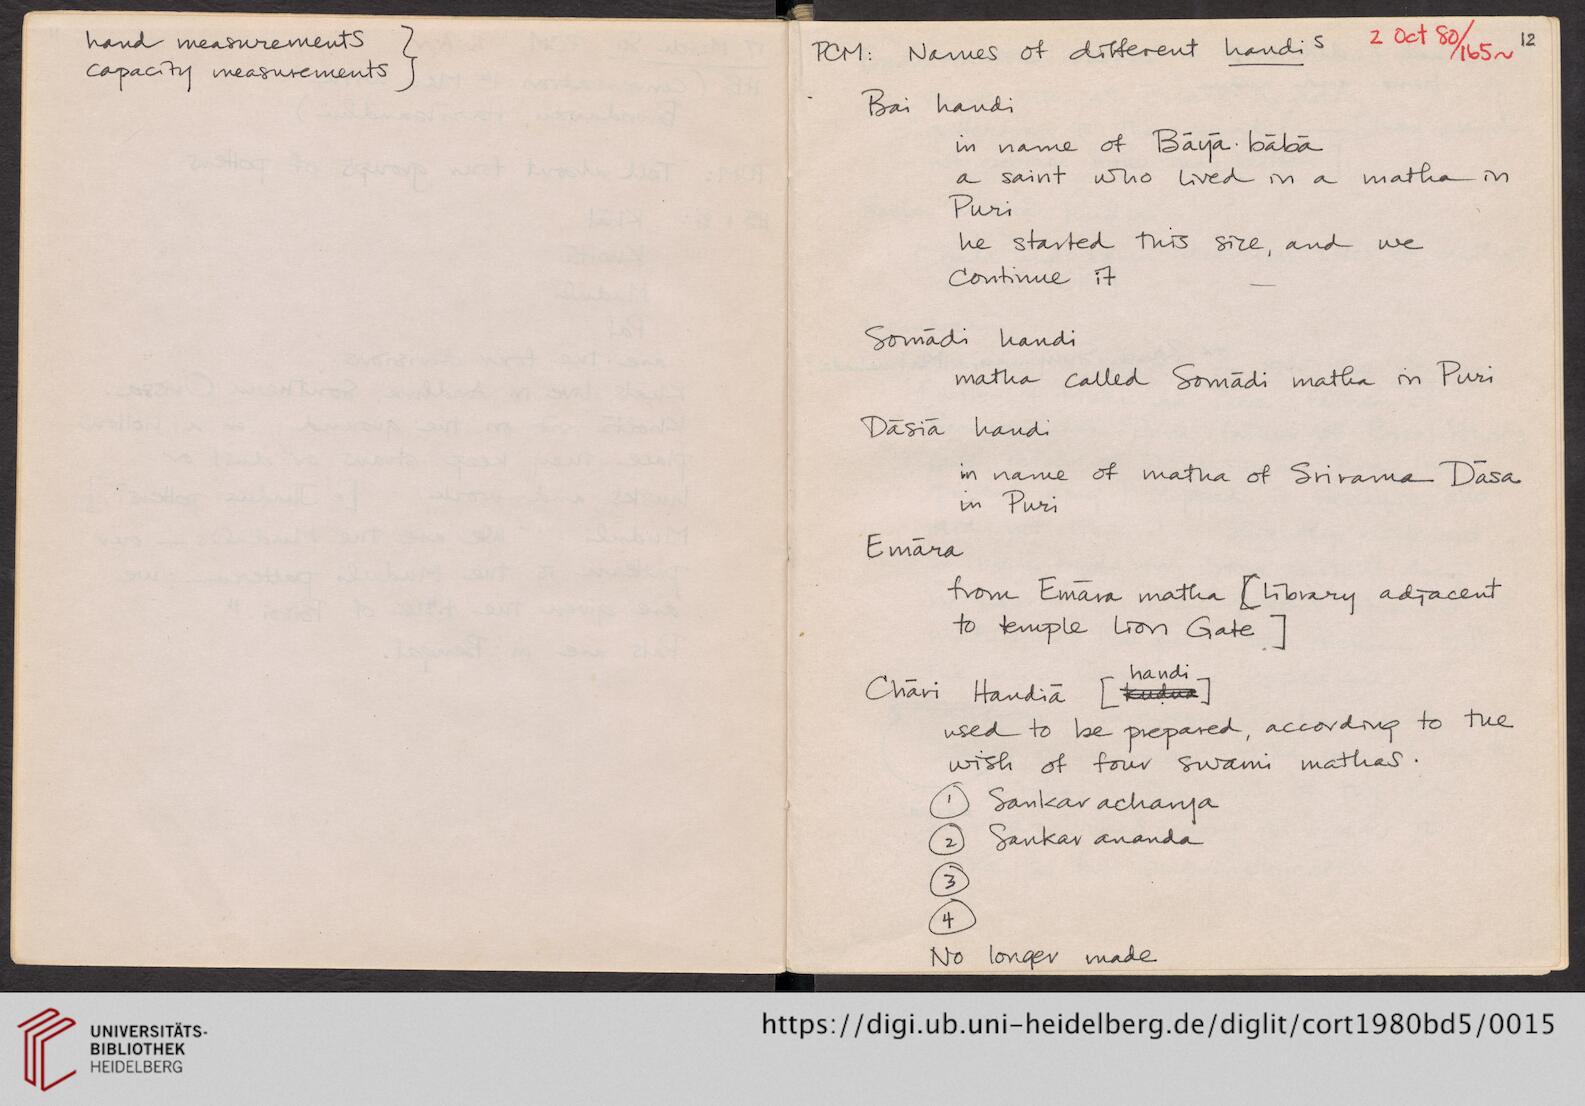 hand measurements }
capacity measurements }
PCM: Names of different handis
2 Oct 80/165~
12
Bai handi
in name of Bāyā·bābā
a saint who lived in a matha in
Puri
he started this size, and we
continue it —
Somādi handi
matha called Somādi matha in Puri
Dāsiā handi
in name of matha of Srirama Dāsa
in Puri
Emāra
from Emāra matha [library adjacent
to temple Lion Gate]
Chāri Handiā [handi]
used to be prepared, according to the
wish of four swami mathas.
① Sankar acharya
② Sankar ananda
③
④
No longer made
UNIVERSITÄTS-
BIBLIOTHEK
HEIDELBERG
https://digi.ub.uni-heidelberg.de/diglit/cort1980bd5/0015